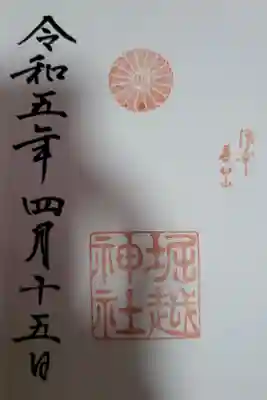 堀越
神社
令和五年四月十五日